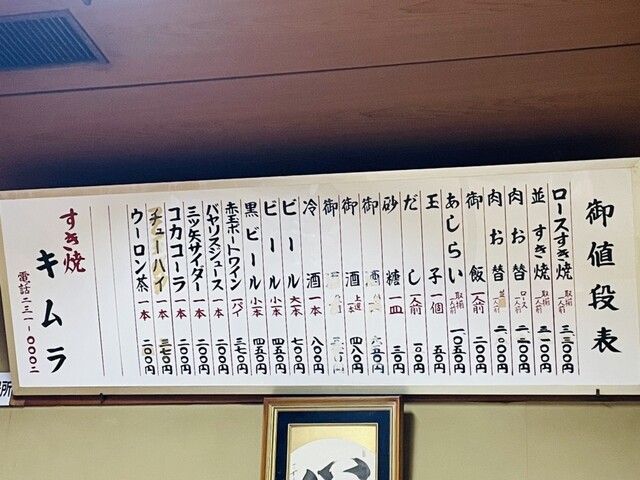 御値段表
ロースすき焼 取揃一人前 三.三〇〇円
並すき焼 取揃一人前 三.一〇〇円
肉お替 ロース一人前 二.二〇〇円
肉お替 一人前 二.〇〇〇円
御飯 一人前 二〇〇円
あしらい 取揃一人前 一.〇五〇円
玉子 一個 五〇円
だし 一人前 一〇〇円
砂糖 一皿 三〇円
御酒
御酒 上選一本 四八〇円
御酒
冷酒 一本 八〇〇円
ビール 大一本 七〇〇円
ビール 小一本 四五〇円
黒ビール 小一本 四五〇円
赤玉ポートワイン 一パイ 三七〇円
バヤリスジュース 一本 二〇〇円
三ツ矢サイダー 一本 二〇〇円
コカコーラ 一本 二〇〇円
チューハイ 一本 三七〇円
ウーロン茶 一本 二〇〇円
すき焼
キムラ
電話二三一-〇〇〇二
所